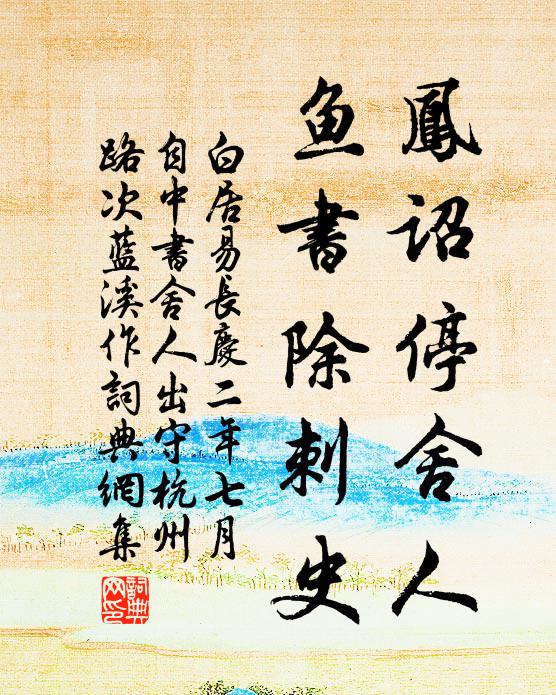 鳳詔停舍人
魚書除刺史
白居易長慶二年七月
自中書舍人出守杭州
路次藍溪作詞典網集
詞典
网印